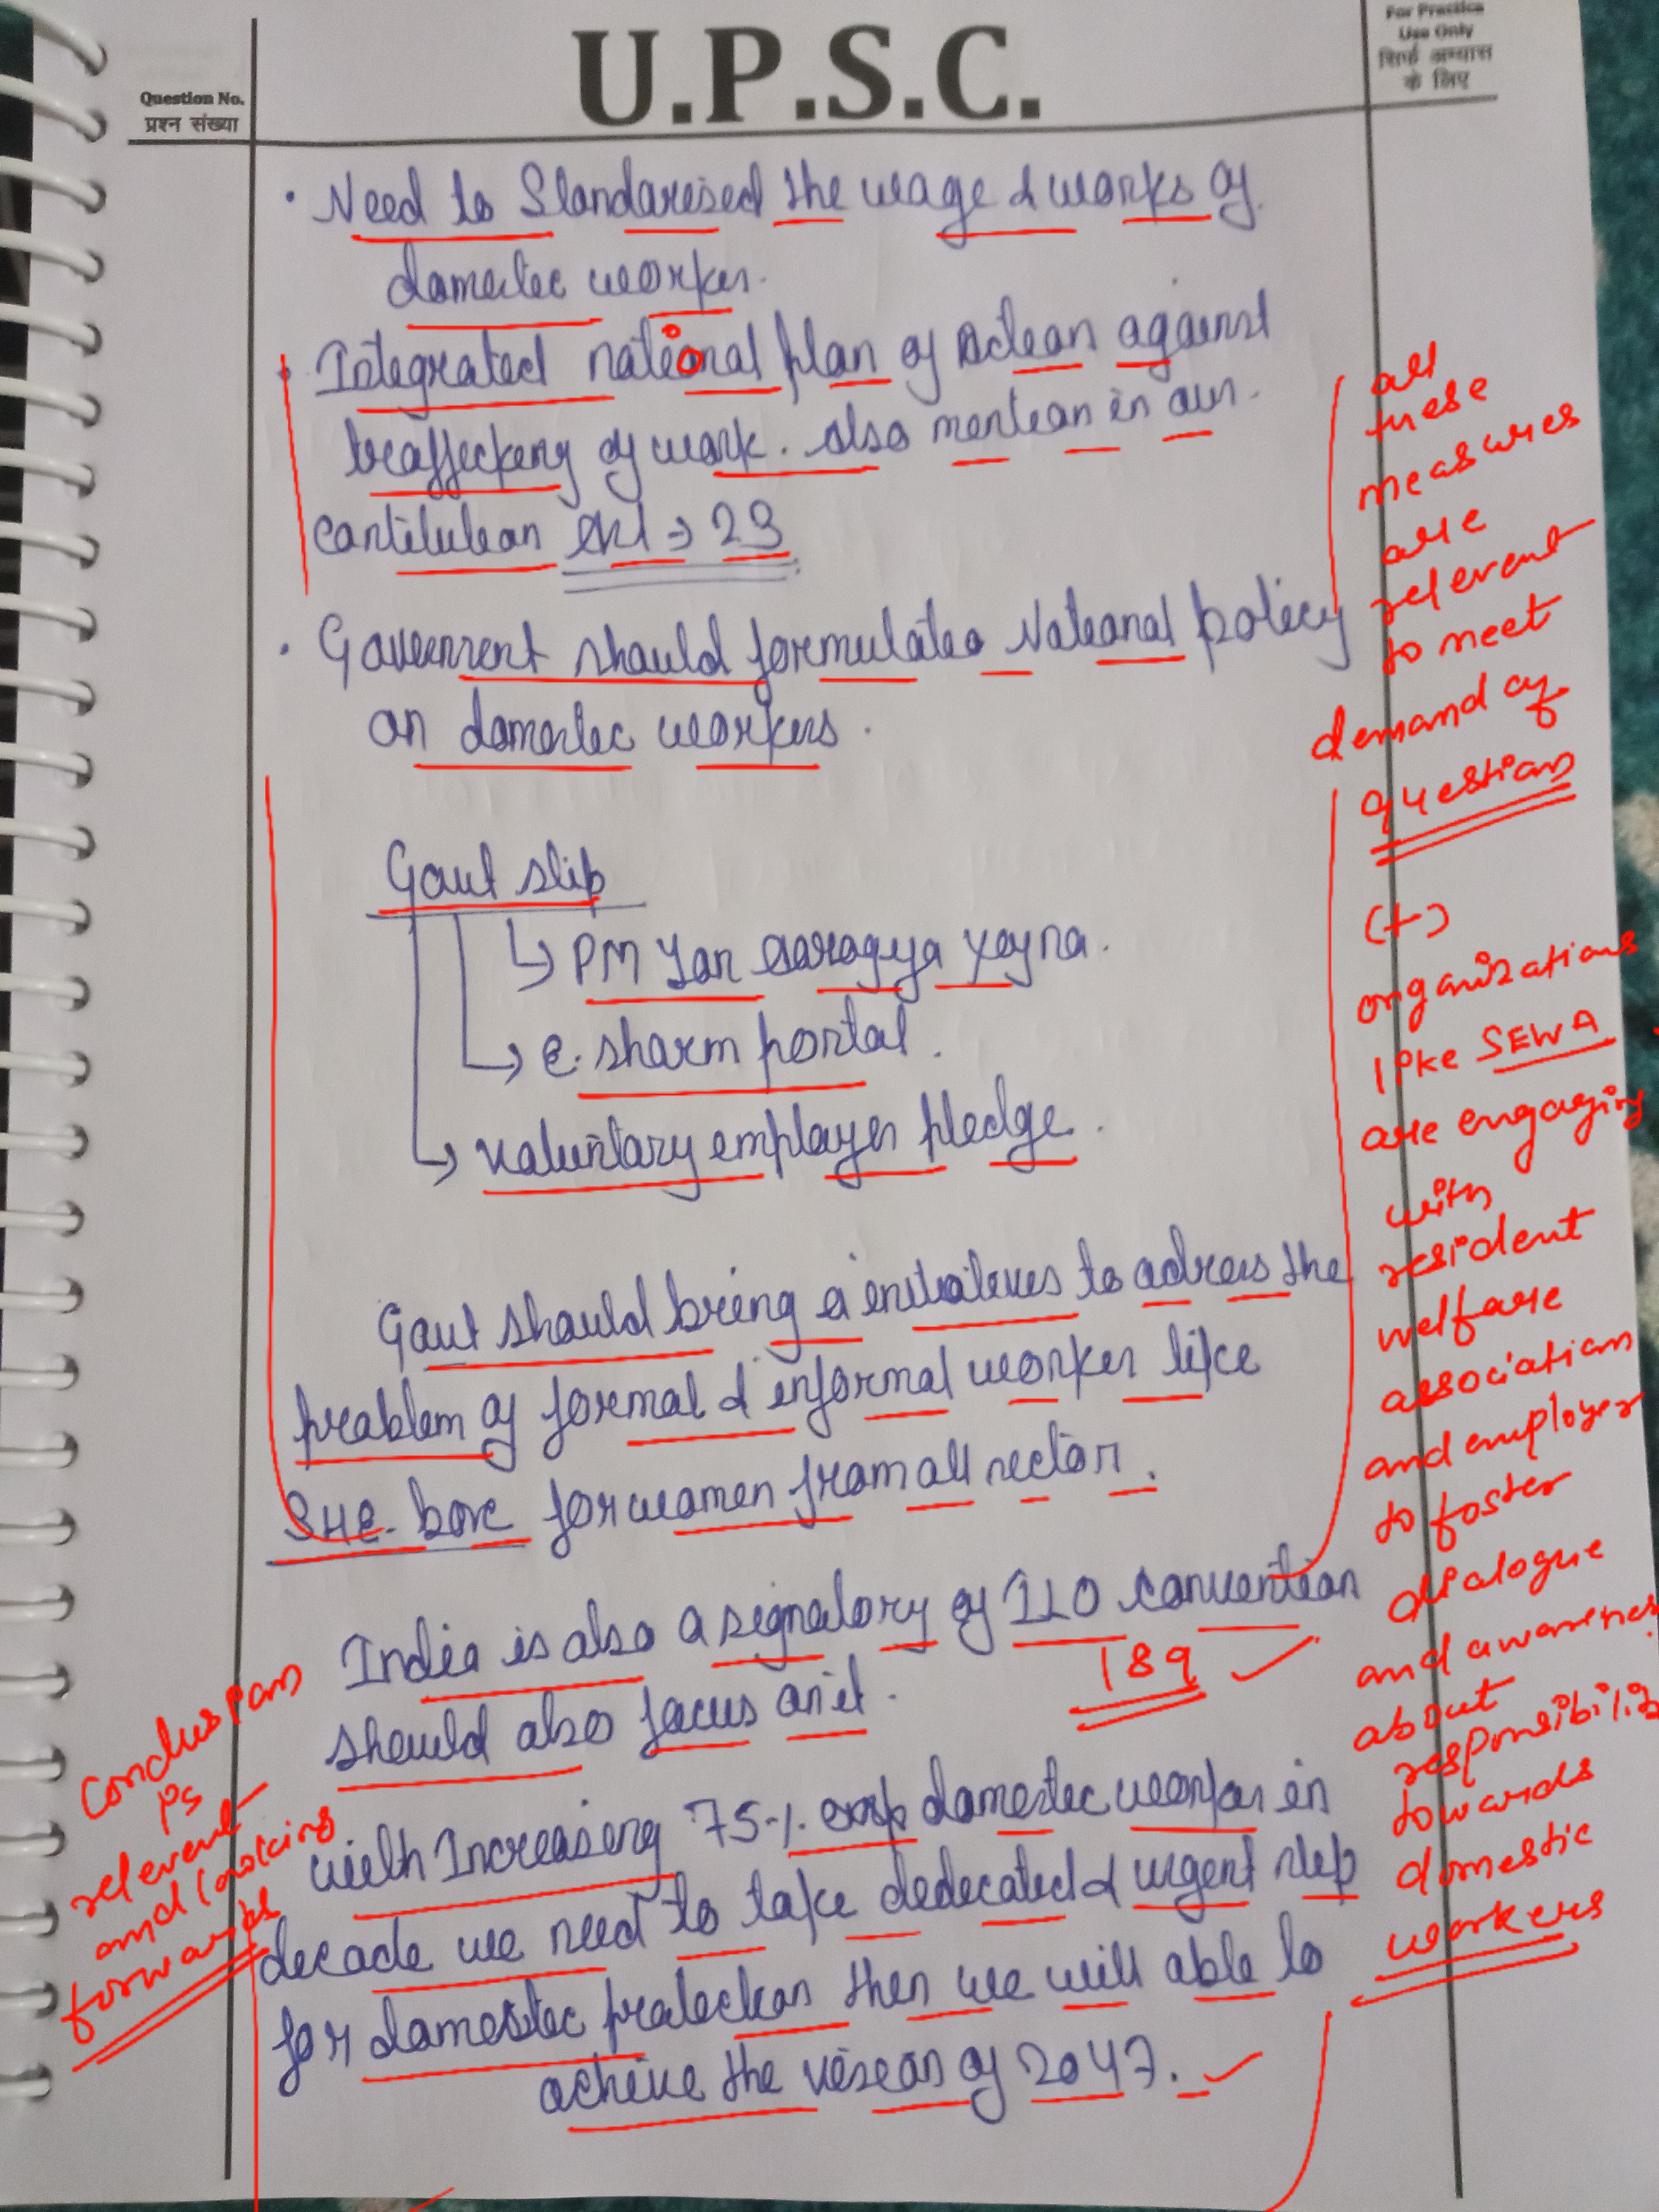 For Practice
Use Only
सिर्फ अभ्यास
के लिए
Question No.
प्रश्न संख्या
U.P.S.C.
• Need to Standaresed the wage & works of
domestec worker.
• Integrated national plan of Action against
traffecking of work. also mention in our
constitution Art → 23
• Government should formulates National policy
on domestec workers.
Govt step
↳ PM Jan Aarogya Yojna.
→ E. sharm portal.
→ voluntary employer pledge.
Govt should bring a initiatives to adress the
problem of formal & informal worker like
SHE-box for women from all sector.
India is also a signatory of ILO convention
189
should also focus on it.
with Increaseng 75% domestec worker in
decade we need to take dedecated & urgent step
for domestec protection then we will able to
achive the vision of 2047.
all
these
measures
are
relevent
to meet
demand of
question
(+)
organizations
like SEWA
are engaging
with
resident
welfare
association
and employer
to foster
dialogue
and awareness
about
responsibility
towards
domestic
workers
Conclusion
is
relevent
and looking
forwards